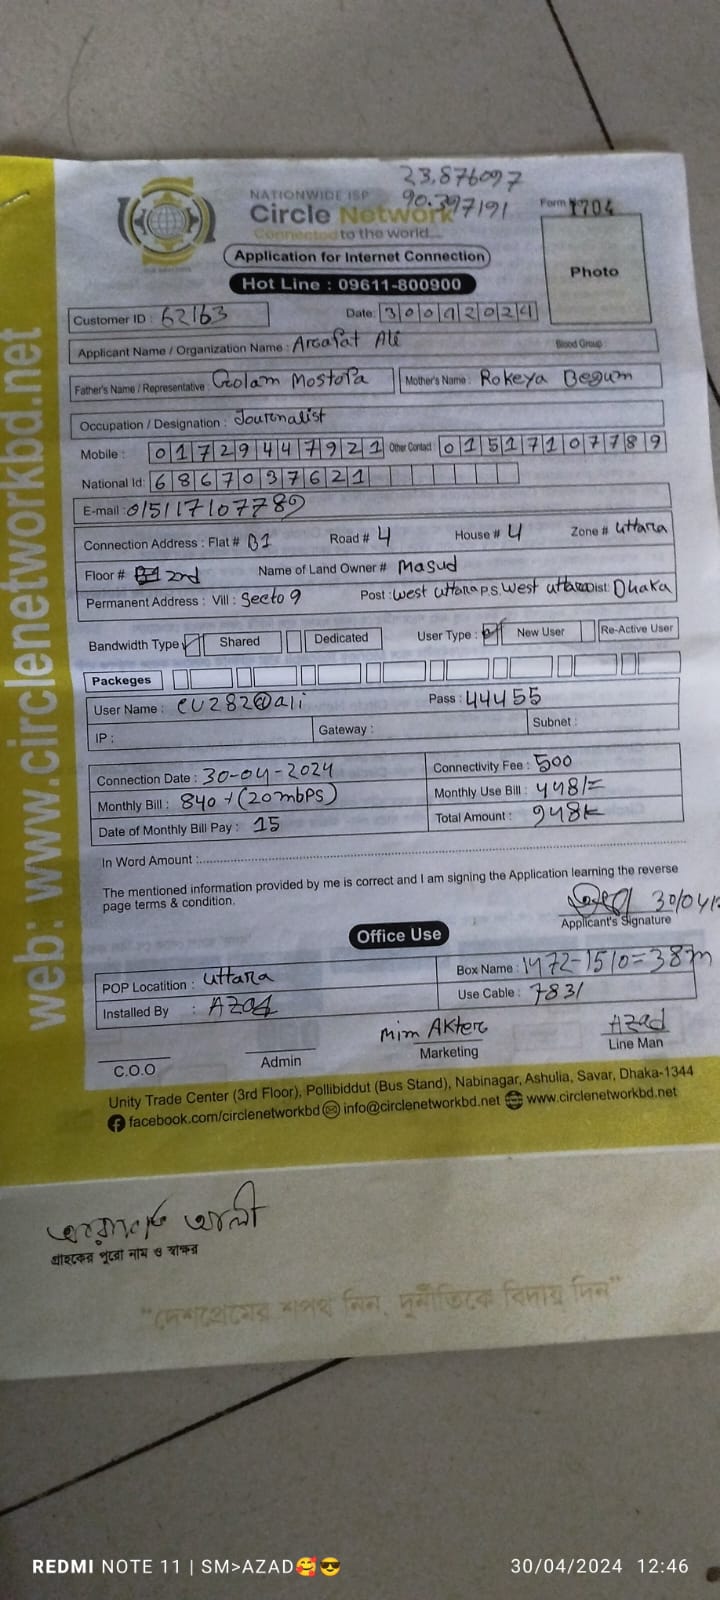 23.876097
90.397191
NATIONWIDE ISP
Circle Network
Connected to the world....
Form 1704
Application for Internet Connection
Hot Line : 09611-800900
Photo
Customer ID : 62163 Date: 30042024
Applicant Name / Organization Name : Arafat Ali Blood Group :
Father's Name / Representative : Golam Mostofa Mother's Name : Rokeya Begum
Occupation / Designation : Journalist
Mobile : 01729447921 Other Contact : 01517107789
National Id: 6867037621
E-mail : 01517107789
Connection Address : Flat # B1 Road # 4 House # 4 Zone # Uttara
Floor # 2nd Name of Land Owner # Masud
Permanent Address : Vill : Secto 9 Post : West Uttara P.S. West Uttara Dist: Dhaka
Bandwidth Type Shared Dedicated User Type : New User Re-Active User
Packeges
User Name : cu282@ali Pass : 44455
IP : Gateway : Subnet :
Connection Date : 30-04-2024 Connectivity Fee : 500
Monthly Bill : 840/- (20mbps) Monthly Use Bill : 448/=
Date of Monthly Bill Pay : 15 Total Amount : 948/=
In Word Amount :
The mentioned information provided by me is correct and I am signing the Application learning the reverse
page terms & condition.
30/04/2
Applicant's Signature
Office Use
POP Locatition : Uttara Box Name : 1472-1510=38m
Installed By : Azad Use Cable : 7831
C.O.O Admin Mim Akter Marketing Azad Line Man
Unity Trade Center (3rd Floor), Pollibiddut (Bus Stand), Nabinagar, Ashulia, Savar, Dhaka-1344
facebook.com/circlenetworkbd info@circlenetworkbd.net www.circlenetworkbd.net
web: www.circlenetworkbd.net
আরাফাত আলী
গ্রাহকের পুরো নাম ও স্বাক্ষর
"দেশপ্রেমের শপথ নিন, দুর্নীতিকে বিদায় দিন"
REDMI NOTE 11 | SM>AZAD🥰😎 30/04/2024 12:46